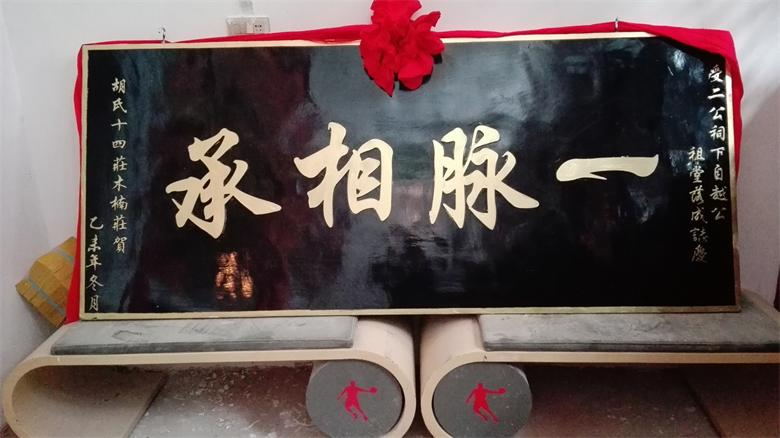 受二公祠下自越公
祖堂落成誌慶
一脉相承
胡氏十四莊木楠莊賀
乙未年冬月